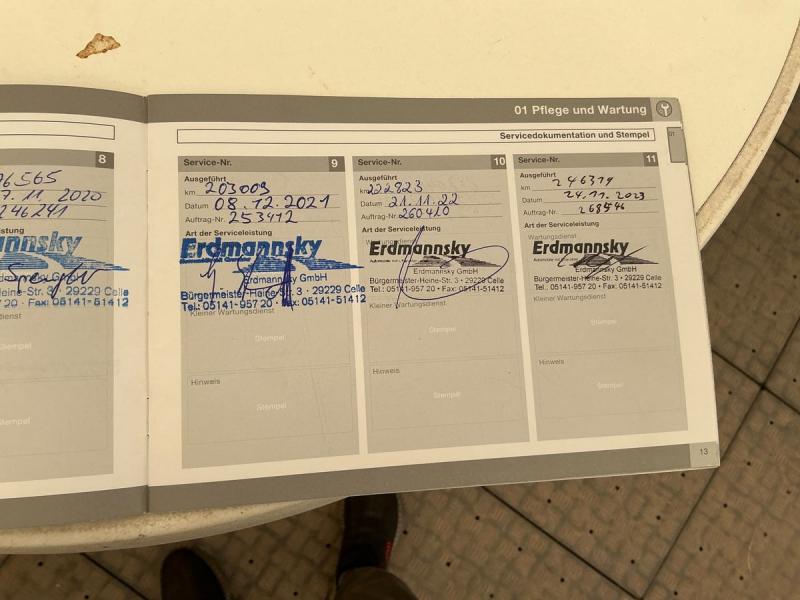 01 Pflege und Wartung
Servicedokumentation und Stempel
01
8
2020
246241
leistung
nnsky
GmbH
Heine-Str. 3 • 29229 Celle
20 • Fax: 05141-51412
dienst
Stempel
Stempel
Service-Nr. 9
Ausgeführt
km 203009
Datum 08.12.2021
Auftrag-Nr. 253412
Art der Serviceleistung
Erdmannsky
Erdmannsky GmbH
Bürgermeister-Heine-Str. 3 • 29229 Celle
Tel.: 05141-957 20 • Fax: 05141-51412
Kleiner Wartungsdienst
Stempel
Hinweis
Stempel
Service-Nr. 10
Ausgeführt
km 222823
Datum 21.11.22
Auftrag-Nr. 260410
Art der Serviceleistung
Erdmannsky
Erdmannsky GmbH
Bürgermeister-Heine-Str. 3 • 29229 Celle
Tel.: 05141-957 20 • Fax: 05141-51412
Kleiner Wartungsdienst
Stempel
Hinweis
Stempel
Service-Nr. 11
Ausgeführt
km 246379
Datum 24.11.2023
Auftrag-Nr. 268546
Art der Serviceleistung
Wartungsdienst
Erdmannsky
Erdmannsky GmbH
Bürgermeister-Heine-Str. 3 • 29229 Celle
Tel.: 05141-957 20 • Fax: 05141-51412
Kleiner Wartungsdienst
Stempel
Hinweis
Stempel
13